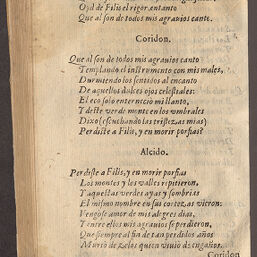 Oyd de Filis el rigor. entanto
Que al son de todos mis agrauios canto.
Coridon.
Que al son de todos mis agrauios canto
Templando el instrumento con mis males,
Durmiendo los sentidos al encanto
De aquellos dulces ojos celestiales:
El eco solo enternecio mi llanto,
Y deste verde monte en los vmbrales
Dixo (escuchando las tristezas mias)
Perdiste a Filis, y en morir porfias?
Alcido.
Perdiste a Filis, y en morir porfias
Los montes y los valles repitieron,
Y aquestas verdes ayas y sombrias
El mismo nombre en sus cortezas vieron:
Vengose amor de mis alegres dias,
Y entre ellos mis agrauios se perdieron,
Que siempre al fin de tan perdidos años
Murio de zelos quien viuio de engaños.
Coridon